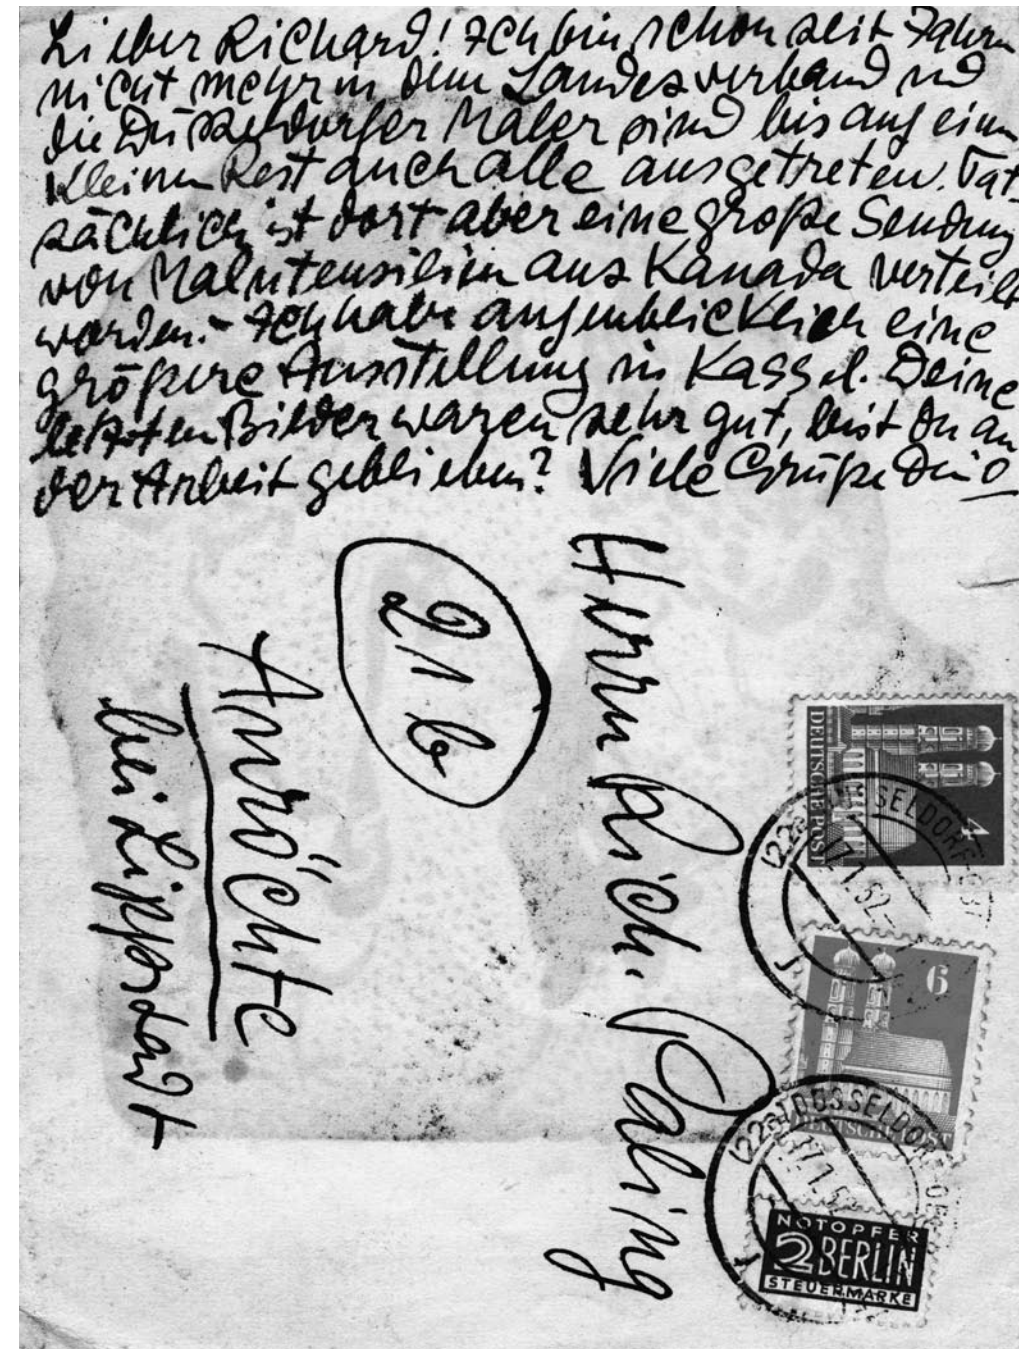 Lieber Richard! Ich bin schon seit Jahren
nicht mehr in dem Landesverband und
die Düsseldorfer Maler sind bis auf einen
kleinen Rest auch alle ausgetreten. Tat-
sächlich ist dort aber eine große Sendung
von Malutensilien aus Kanada verteilt
worden. - Ich habe augenblicklich eine
größere Ausstellung in Kassel. Deine
letzten Bilder waren sehr gut, bist Du an
der Arbeit geblieben? Viele Grüße Dein O
Herrn Rich. Paling
21b
Anröchte
bei Lippstadt
DEUTSCHE POST
4
(22a) DÜSSELDORF
17.1.52
6
DEUTSCHE POST
(22a) DÜSSELDORF
17.1.52
NOTOPFER
2 BERLIN
STEUERMARKE